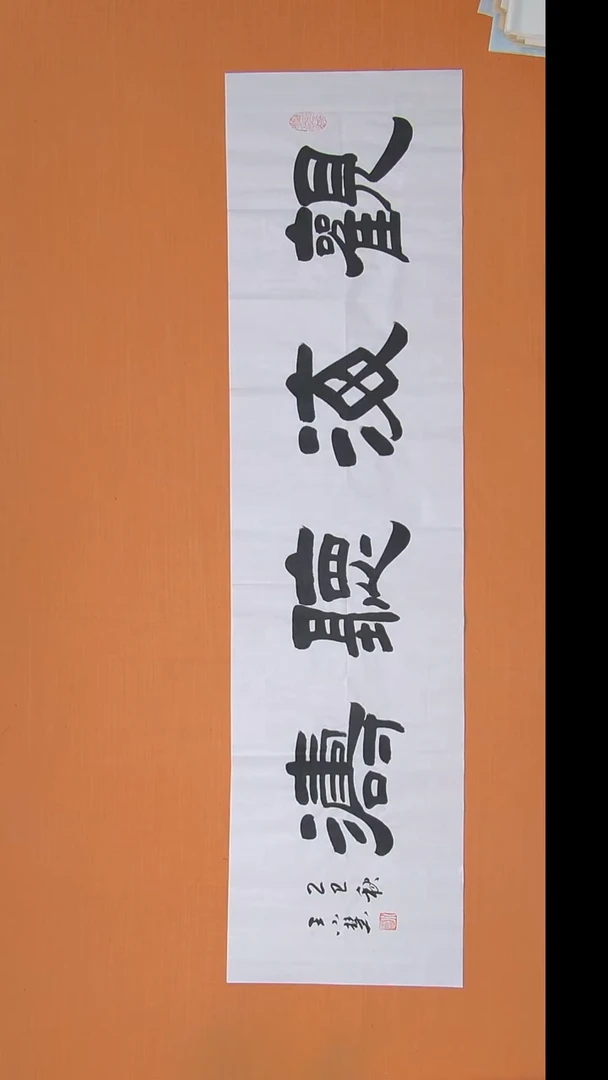 觀海聽濤
乙巳秋
王小